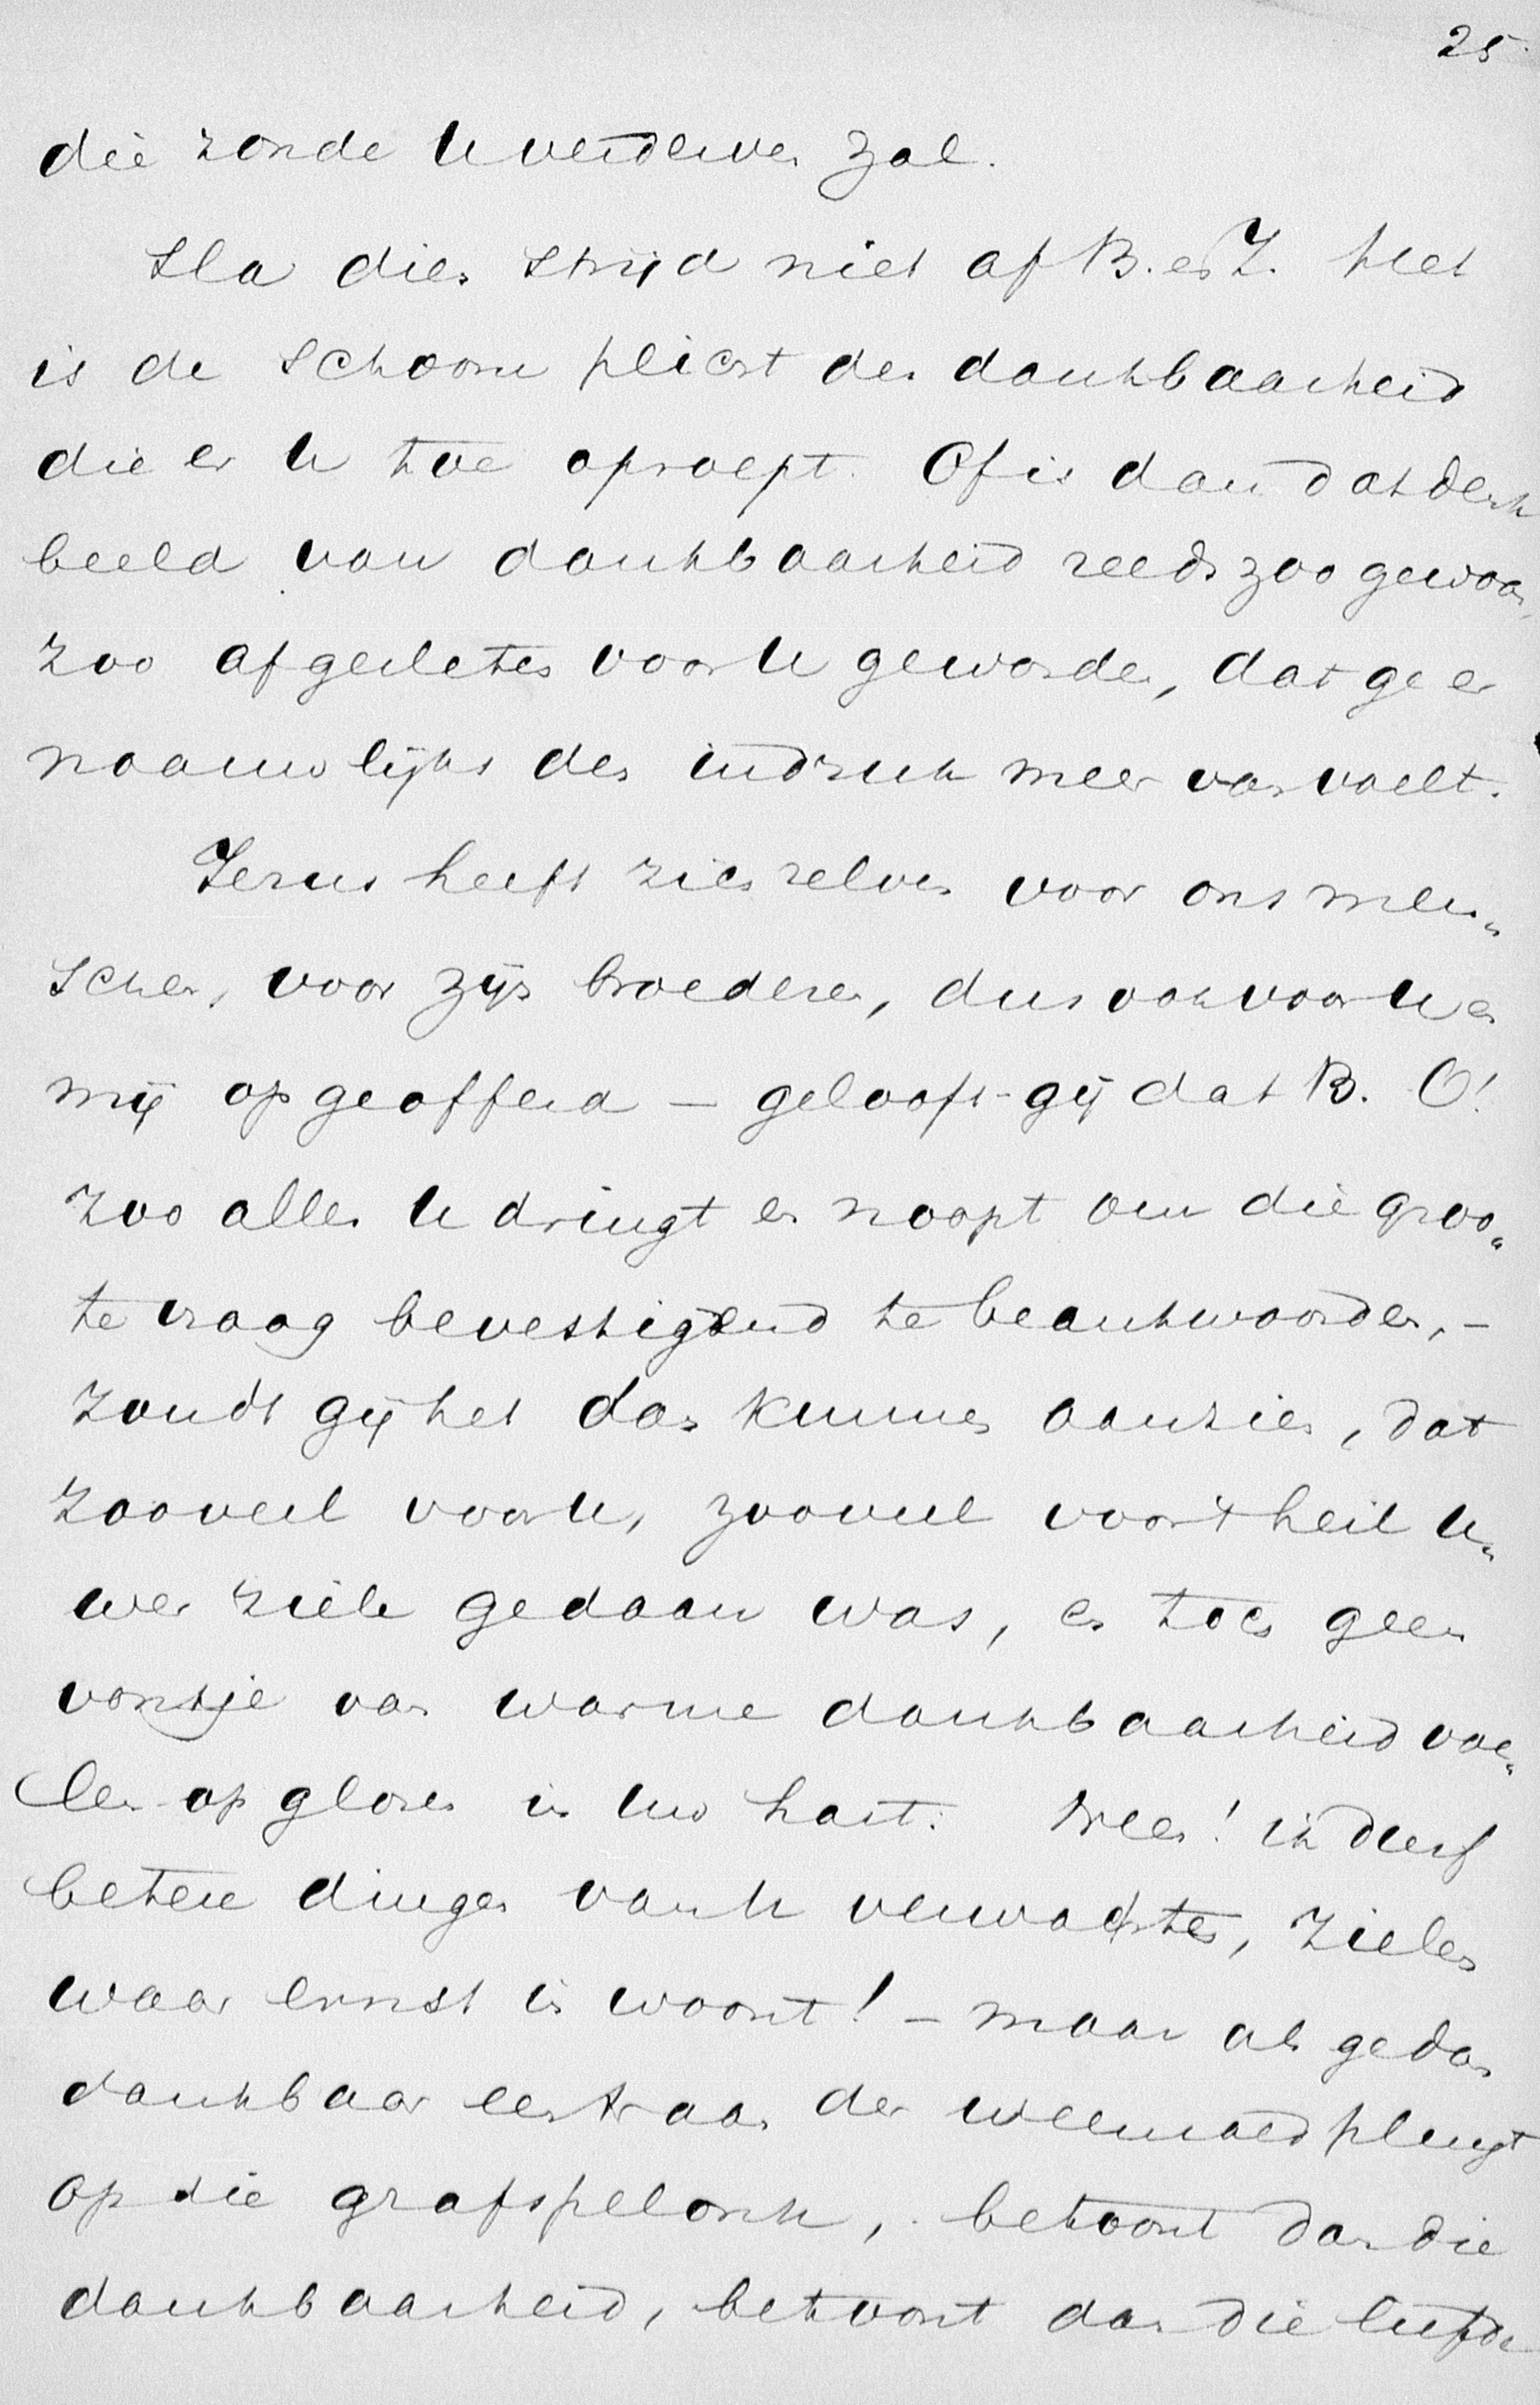 25.
die zonde U verderven zal.
Sla dien strijd niet af B. en Z. Het
is de schoone plicht der dankbaarheid
die er U toe oproept. Of is dan dat denk
beeld van dankbaarheid reeds zoo gewoon,
zoo afgesleten voor U geworden, dat ge er
naauwlijks den indruk meer van voelt.
Jezus heeft zich zelven voor ons men„
schen, voor zijn broederen, dus ook voor U en
mij opgeofferd — gelooft gij dat B. O!
zoo alles U dringt en noopt om die groo„
te vraag bevestigend te beantwoorden, —
zoudt gij het dan kunnen aanzien, dat
zooveel voor U, zooveel voor 't heil u„
wer ziele gedaan was, en toch geen
vonkje van warme dankbaarheid voe„
len opgloren in uw hart. Neen! ik durf
betere dingen van U verwachten, zielen
waar ernst in woont! — maar als ge dan
dankbaar een traan der weemoed plengt
op die grafspelonk, betoont dan die
dankbaarheid, betoont dan die liefde